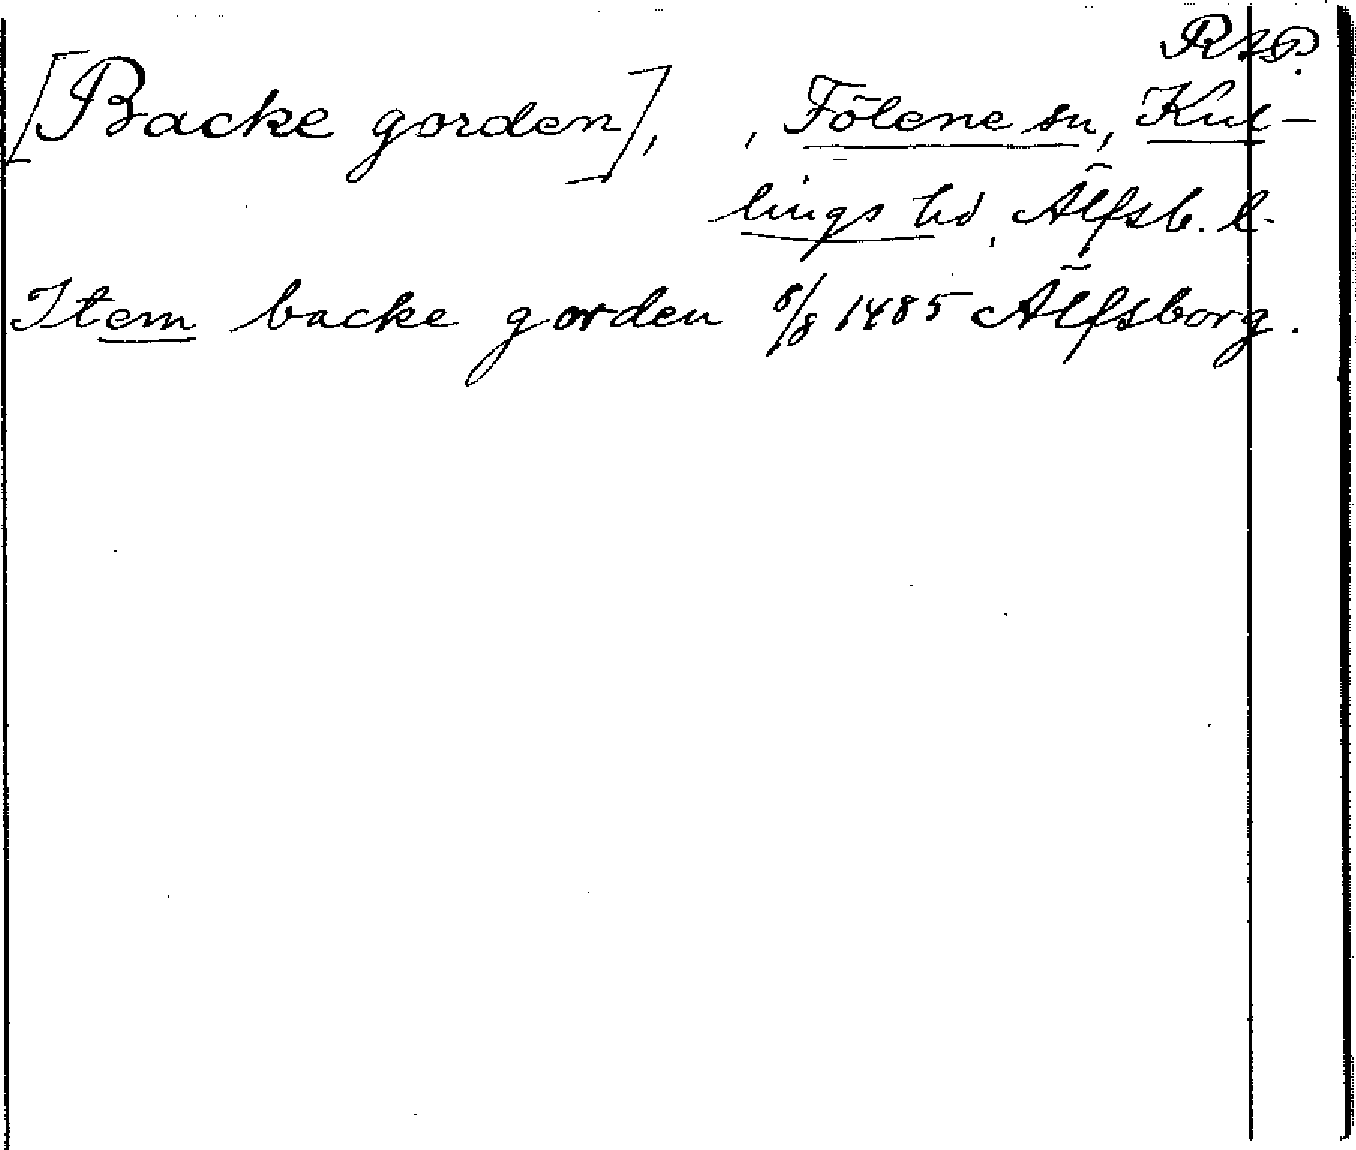 RAP.
[Backe gorden], , Fölene sn, Kul-
lings hd, Älfsb. l.
Item backe gorden 8/8 1485 Älfsborg.